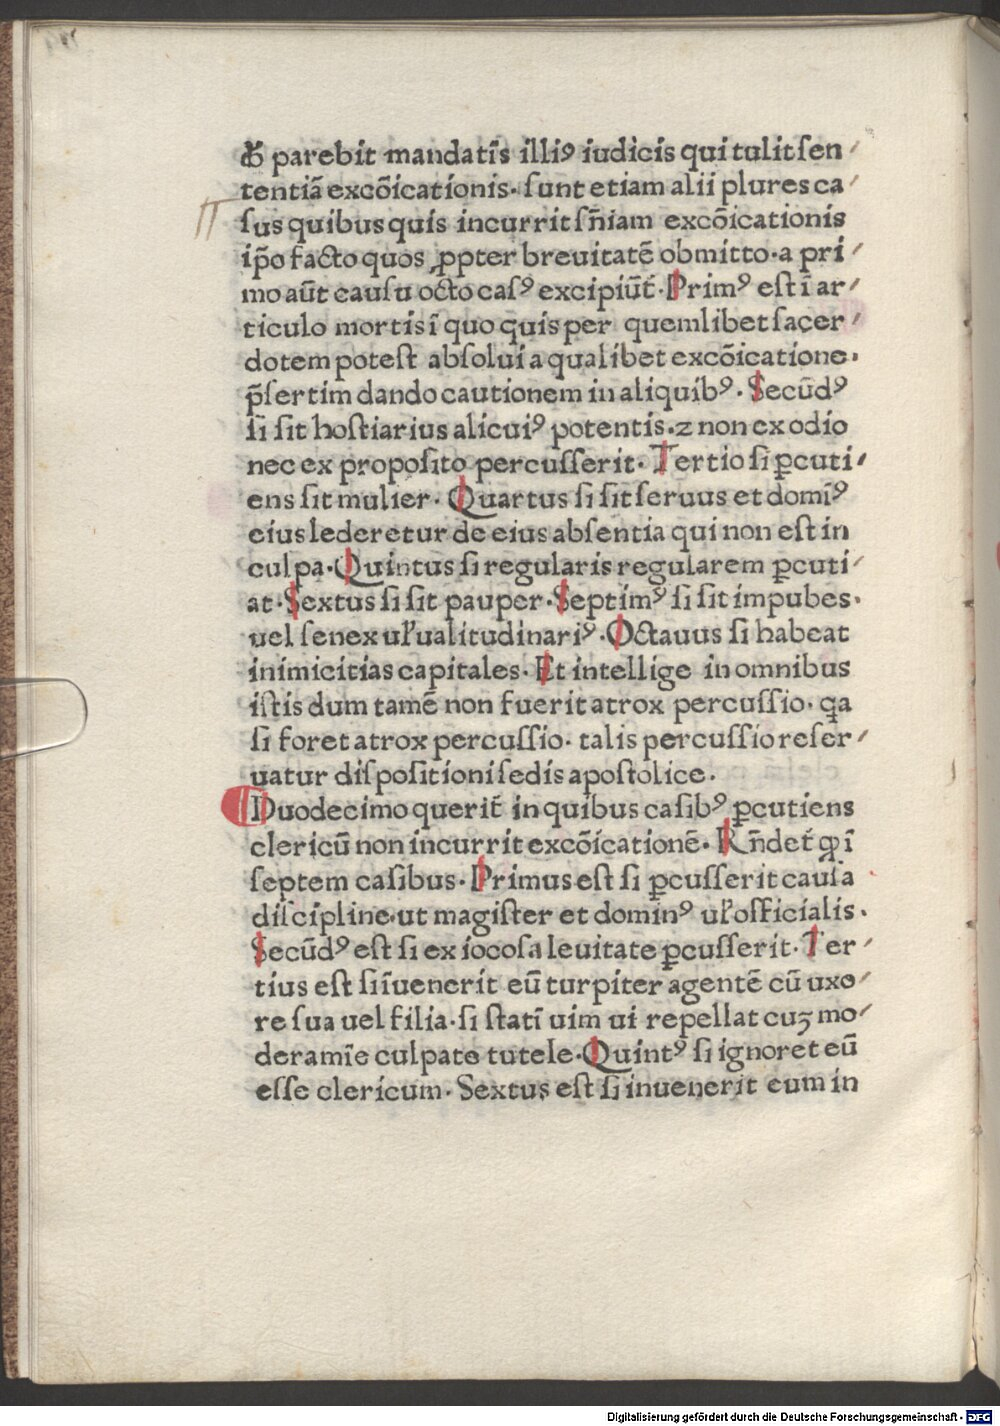 ꝙ parebit mandatis illiꝰ iudicis qui tulit ſen⸗
tentiā excōicationis· ſunt etiam alii plures ca⸗
ſus quibus quis incurrit ſn̄iam excōicationis
ip̄o facto quos ꝓpter breuitatē obmitto·a pri⸗
mo aūt cauſu octo caſꝰ excipiūt̄·Primꝰ eſt ī ar⸗
ticulo mortis ī quo quis per quemlibet ſacer⸗
dotem poteſt abſolui a qualibet excōicatione·
p̄ſertim dando cautionem in aliquibꝰ·Secūdꝰ
ſi ſit hoſtiarius alicuiꝰ potentis·ꝛ non ex odio
nec ex propoſito percuſſerit·Tertio ſi ꝑcuti⸗
ens ſit mulier·Quartus ſi ſit ſeruus et domīꝰ
eius lederetur de eius abſentia qui non eſt in
culpa·Quintus ſi regularis regularem ꝑcuti⸗
at·Sextus ſi ſit pauper·Septimꝰ ſi ſit impubes·
uel ſenex ul̓ ualitudinariꝰ·Octauus ſi habeat
inimicitias capitales·Et intellige in omnibus
iſtis dum tamē non fuerit atrox percuſſio·ꝗa
ſi foret atrox percuſſio· talis percuſſio reſer⸗
uatur diſpoſitioni ſedis apoſtolice·
Duodecimo querit̄ in quibus caſibꝰ ꝑcutiens
clericū non incurrit excōicationē·Rn̄det̄ ꝙ ī
ſeptem caſibus·Primus eſt ſi ꝑcuſſerit cauſa
diſcipline·ut magiſter et dominꝰ ul̓ officialis·
Secūdꝰ eſt ſi ex iocoſa leuitate ꝑcuſſerit·Ter⸗
tius eſt ſi īuenerit eū turpiter agentē cū uxo⸗
re ſua uel filia·ſi ſtatī uim ui repellat cuꝫ mo⸗
deramīe culpate tutele·Quintꝰ ſi ignoret eū
eſſe clericum·Sextus eſt ſi inuenerit eum in
Digitalisierung gefördert durch die Deutsche Forschungsgemeinschaft - DFG